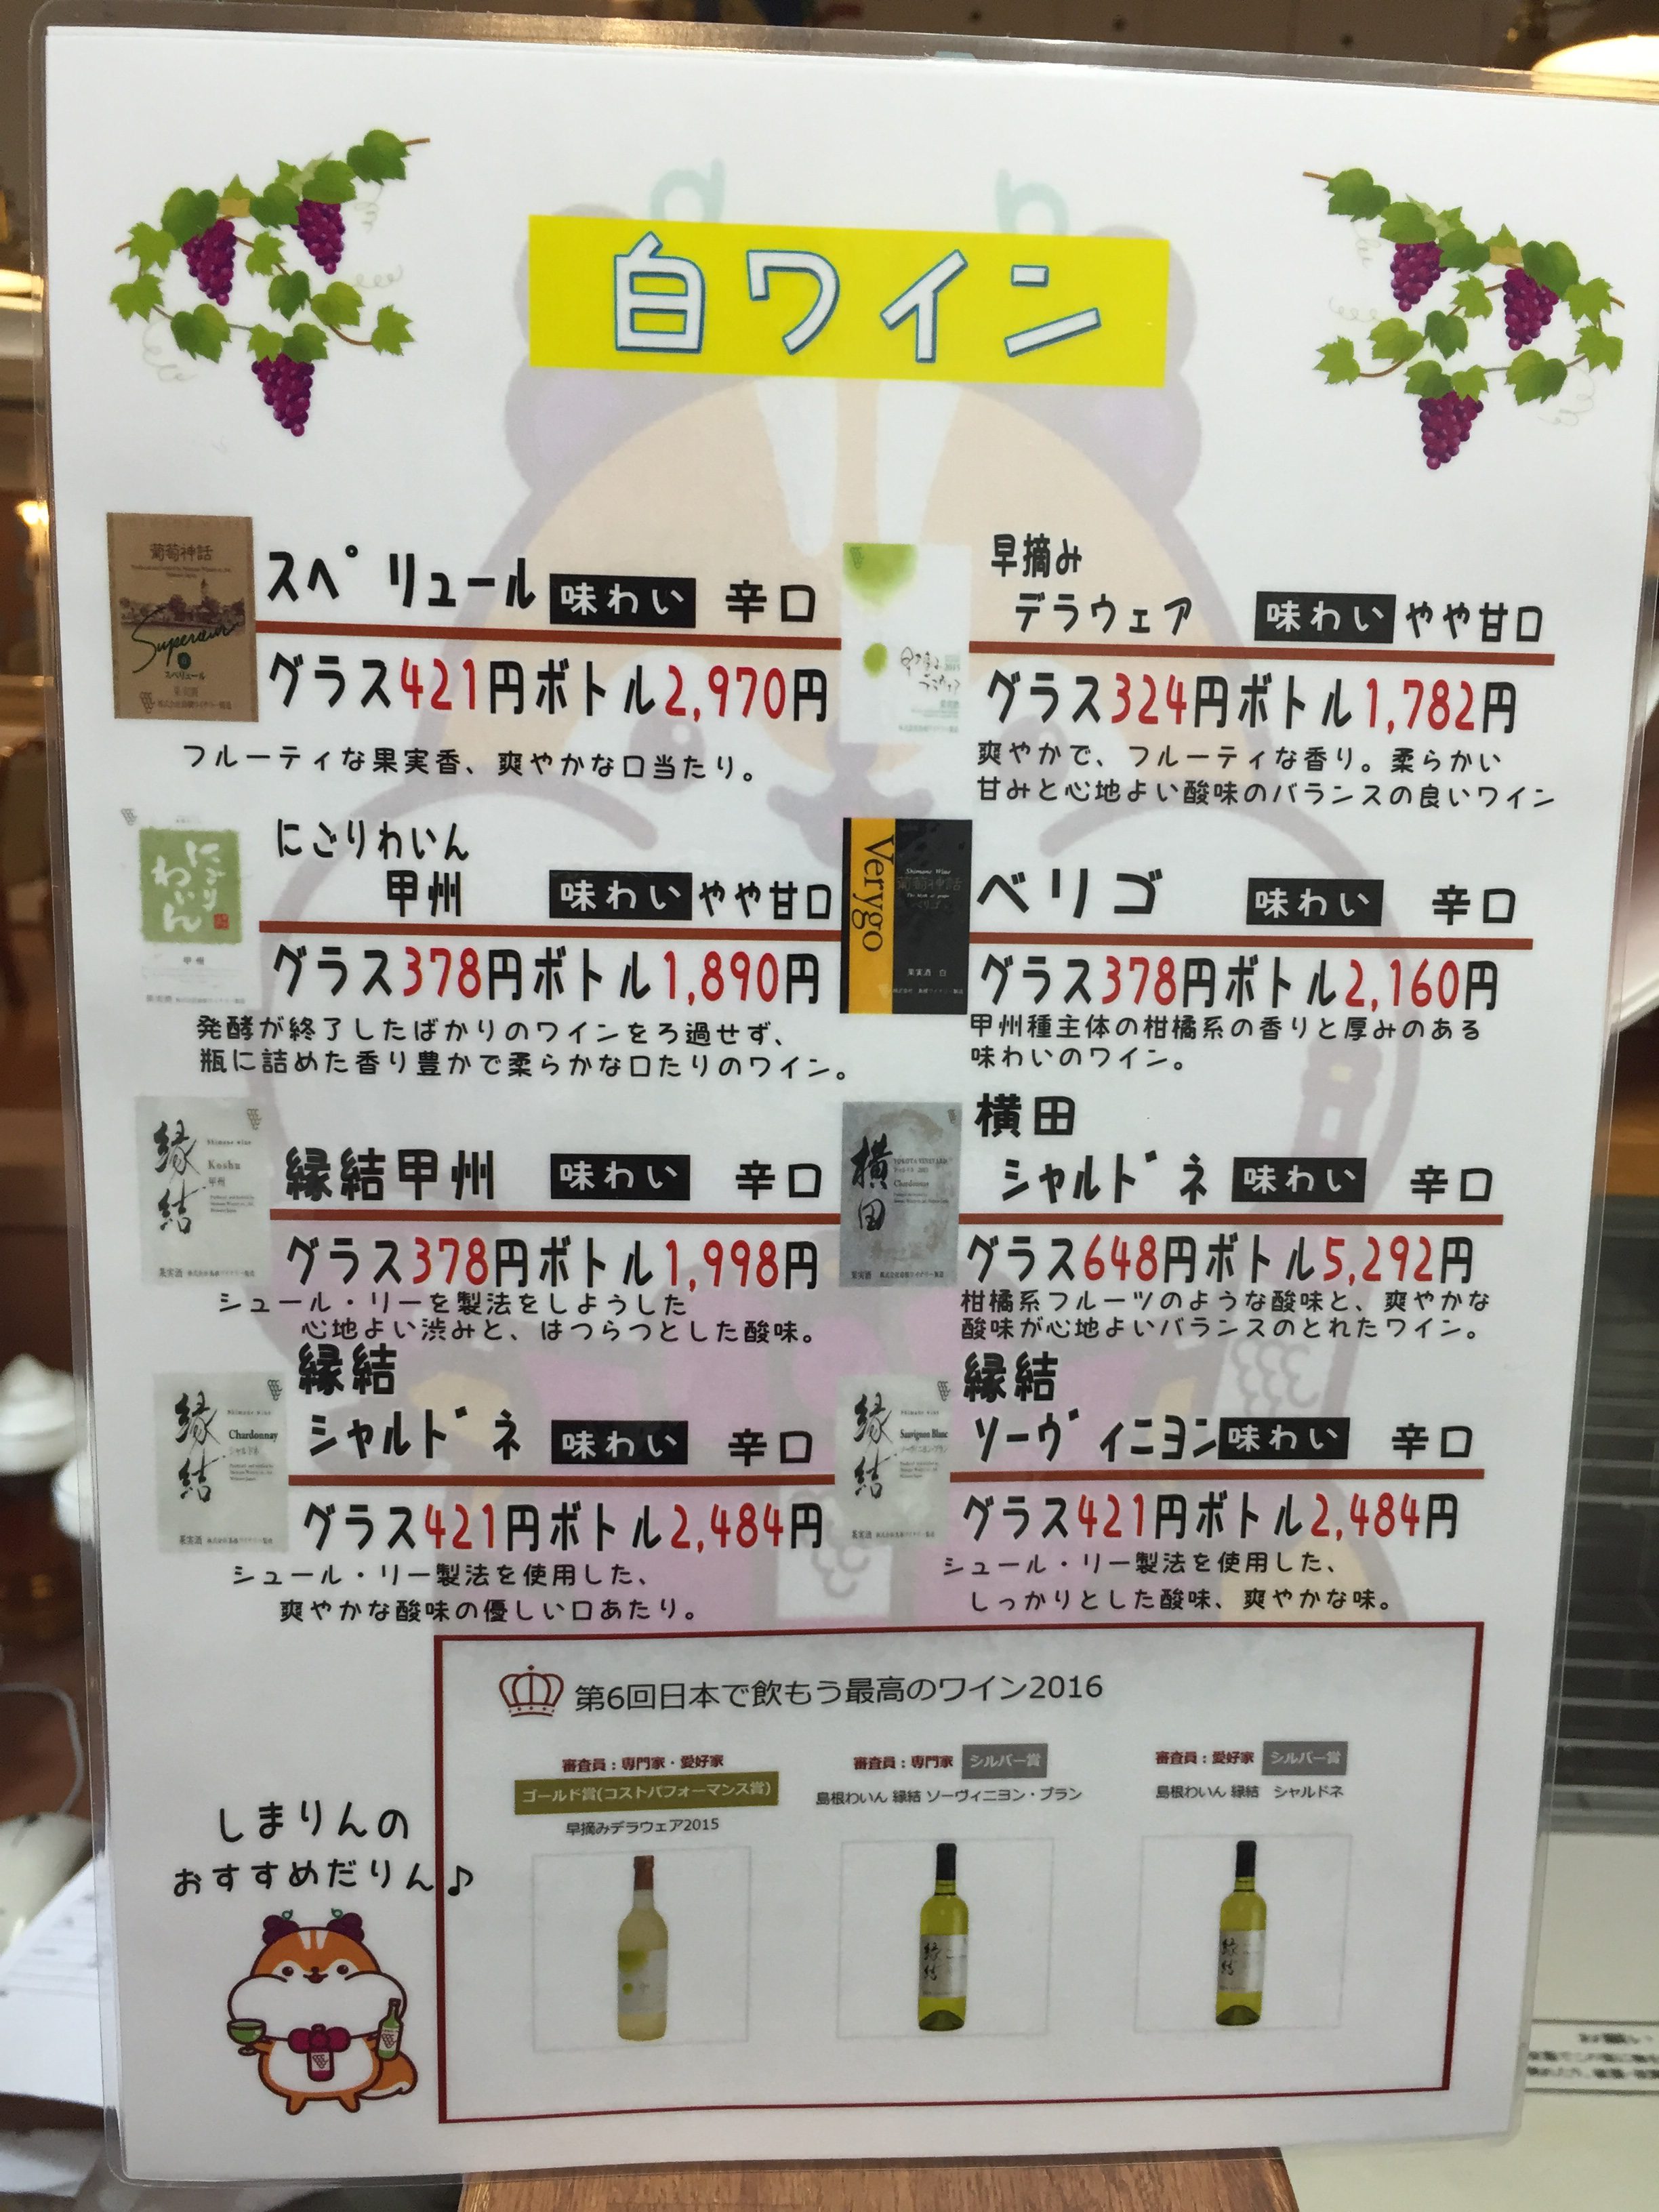 白ワイン
葡萄神話
Superieur
スペリュール
スペリュール 味わい 辛口
グラス421円ボトル2,970円
フルーティな果実香、爽やかな口当たり。
早摘み
デラウェア 味わい やや甘口
グラス324円ボトル1,782円
爽やかで、フルーティな香り。柔らかい
甘みと心地よい酸味のバランスの良いワイン
にごり
わいん
甲州
にごりわいん
甲州 味わい やや甘口
グラス378円ボトル1,890円
発酵が終了したばかりのワインをろ過せず、
瓶に詰めた香り豊かで柔らかな口たりのワイン。
Verygo
Shimane Wine
葡萄神話
ベリゴ
果実酒 白
ベリゴ 味わい 辛口
グラス378円ボトル2,160円
甲州種主体の柑橘系の香りと厚みのある
味わいのワイン。
縁結
Shimane wine
Koshu
甲州
縁結甲州 味わい 辛口
グラス378円ボトル1,998円
シュール・リーを製法をしようした
心地よい渋みと、はつらつとした酸味。
横田
Chardonnay
横田
シャルドネ 味わい 辛口
グラス648円ボトル5,292円
柑橘系フルーツのような酸味と、爽やかな
酸味が心地よいバランスのとれたワイン。
縁結
Shimane wine
Chardonnay
シャルドネ
縁結
シャルドネ 味わい 辛口
グラス421円ボトル2,484円
シュール・リー製法を使用した、
爽やかな酸味の優しい口あたり。
縁結
Shimane wine
Sauvignon Blanc
縁結
ソーヴィニヨン 味わい 辛口
グラス421円ボトル2,484円
シュール・リー製法を使用した、
しっかりとした酸味、爽やかな味。
第6回日本で飲もう最高のワイン2016
審査員：専門家・愛好家
ゴールド賞(コストパフォーマンス賞)
早摘みデラウェア2015
審査員：専門家 シルバー賞
島根わいん 縁結 ソーヴィニヨン・ブラン
審査員：愛好家 シルバー賞
島根わいん 縁結 シャルドネ
縁結
縁結
しまりんの
おすすめだりん♪